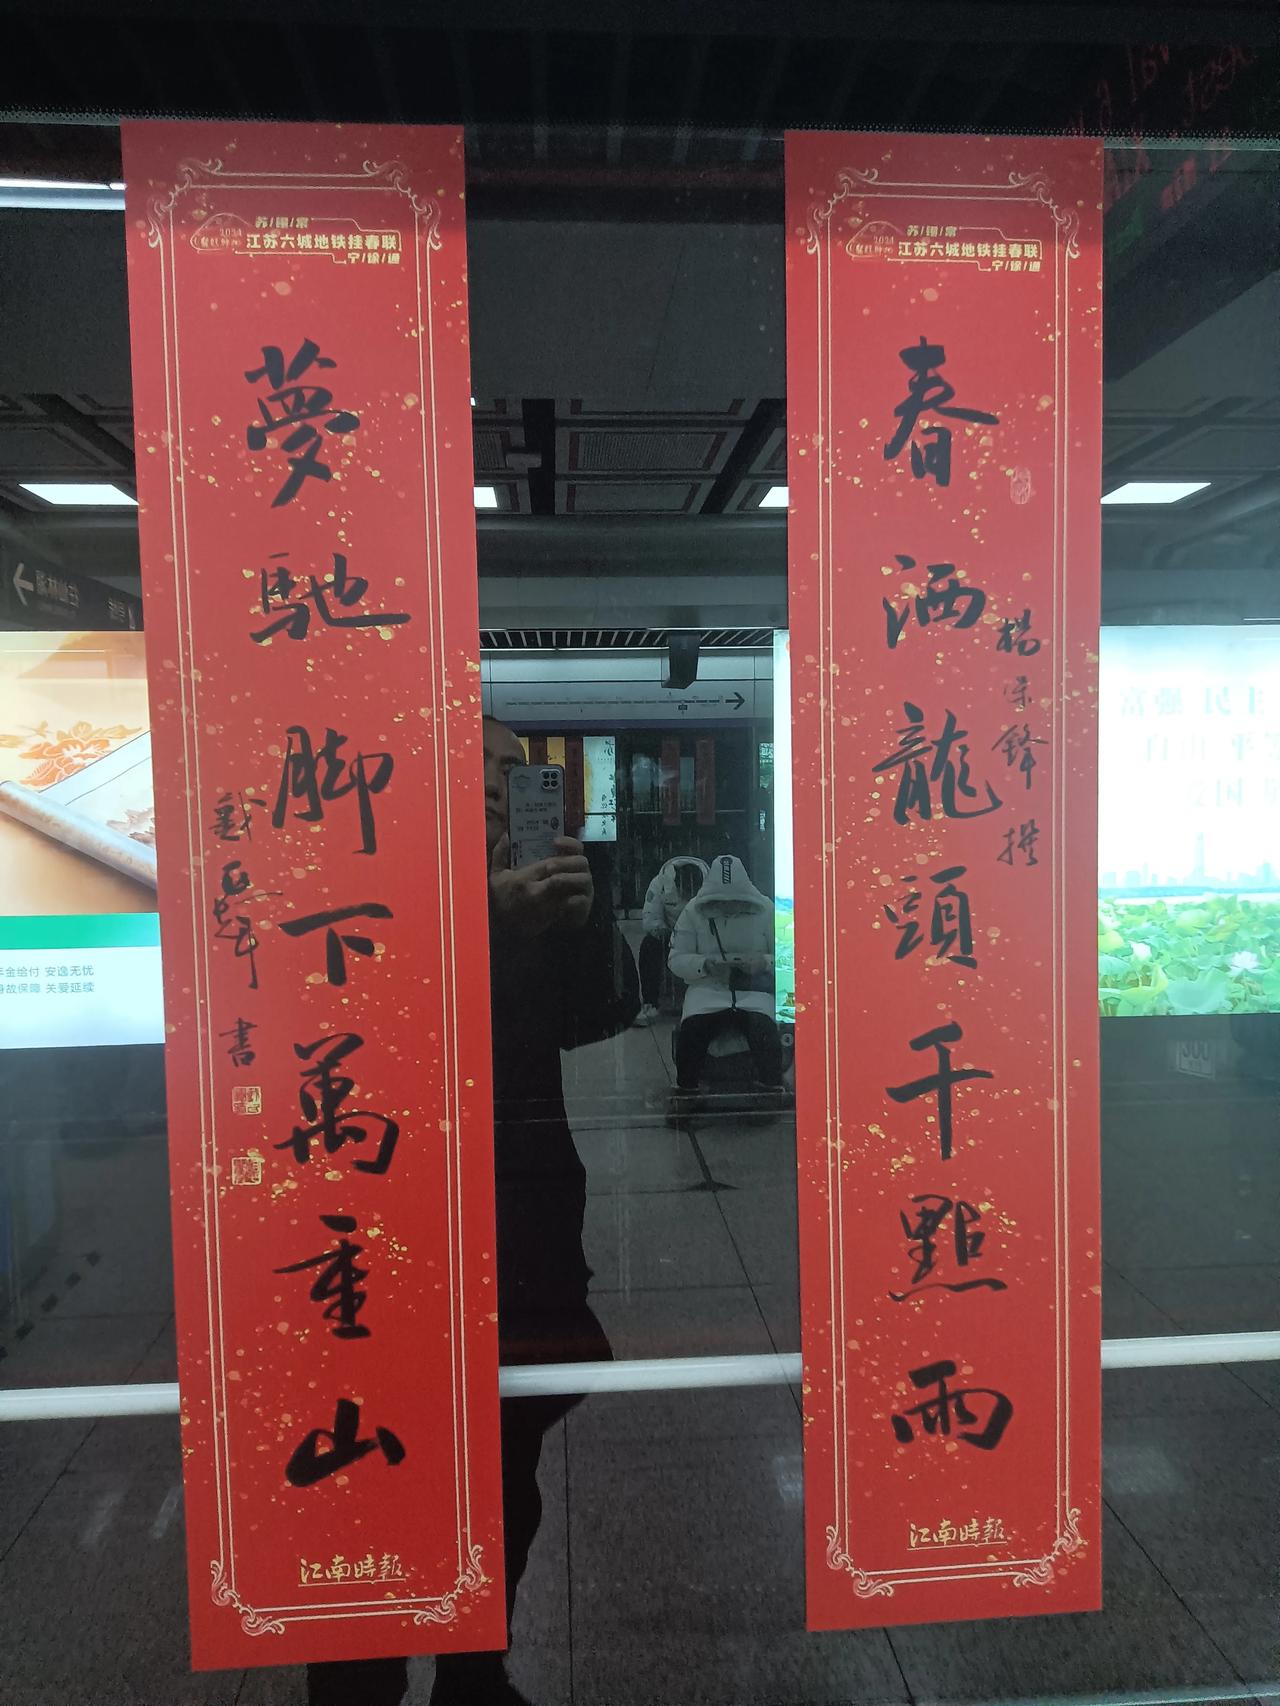 苏/锡/常
2024
江苏六城地铁挂春联
宁/徐/通
春洒龍頭千點雨
撰
江南時報
苏/锡/常
2024
江苏六城地铁挂春联
宁/徐/通
夢馳脚下萬重山
書
江南時報
富强 民主
年金给付 安逸无忧
身故保障 关爱延续